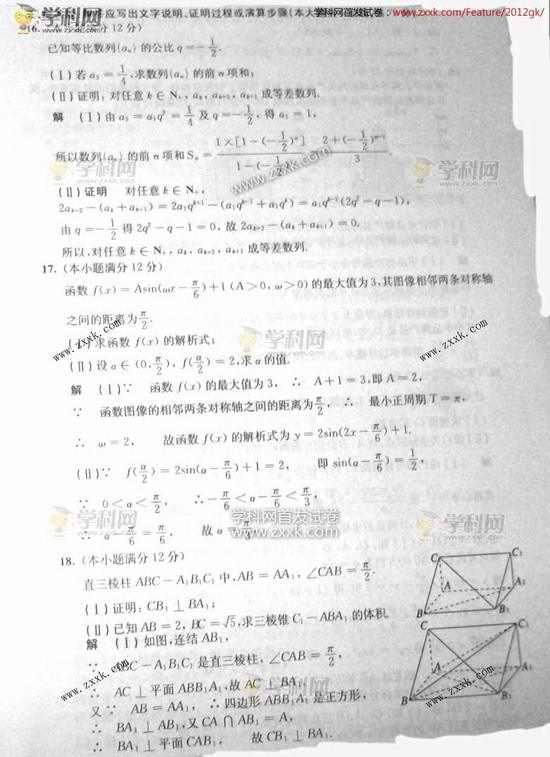 学科网首发试卷
www.zxxk.com/Feature/2012gk/
应写出文字说明、证明过程或演算步骤(本大
16.
分12分)
学科网
www.zxxk.com
已知等比数列{aₙ}的公比 q=-1/2.
(Ⅰ)若 a₃=1/4,求数列{aₙ}的前 n 项和;
(Ⅱ)证明:对任意 k∈N₊,aₖ,aₖ₊₂,aₖ₊₁ 成等差数列.
解 (Ⅰ)由 a₃=a₁q²=1/4 及 q=-1/2,得 a₁=1,
所以数列{aₙ}的前 n 项和 Sₙ=1×[1-(-1/2)ⁿ]/1-(-1/2)=2+(-1/2)ⁿ⁻¹/3.
(Ⅱ)证明 对任意 k∈N₊,
2aₖ₊₂-(aₖ+aₖ₊₁)=2a₁qᵏ⁺¹-(a₁qᵏ⁻¹+a₁qᵏ)=a₁qᵏ⁻¹(2q²-q-1),
由 q=-1/2 得 2q²-q-1=0,故 2aₖ₊₂-(aₖ+aₖ₊₁)=0,
所以,对任意 k∈N₊,aₖ,aₖ₊₂,aₖ₊₁ 成等差数列.
17.(本小题满分12分)
函数 f(x)=Asin(ωx-π/6)+1(A>0,ω>0)的最大值为3,其图像相邻两条对称轴
之间的距离为π/2.
求函数 f(x)的解析式;
(Ⅱ)设 α∈(0,π/2),f(α/2)=2,求 α 的值.
解 (Ⅰ)∵ 函数 f(x)的最大值为3,∴ A+1=3,即 A=2,
∵ 函数图像的相邻两条对称轴之间的距离为π/2,∴ 最小正周期 T=π,
∴ ω=2, 故函数 f(x)的解析式为 y=2sin(2x-π/6)+1.
(Ⅱ)∵ f(α/2)=2sin(α-π/6)+1=2, 即 sin(α-π/6)=1/2,
∵ 0<α<π/2, ∴-π/6<α-π/6<π/3,
∴ α-π/6=π/6, 故 α
学科网首发试卷
www.zxxk.com
18.(本小题满分12分)
直三棱柱 ABC-A₁B₁C₁ 中,AB=AA₁,∠CAB=π/2.
(Ⅰ)证明:CB₁⊥BA₁;
(Ⅱ)已知 AB=2,BC=√5,求三棱锥 C₁-ABA₁ 的体积.
(Ⅰ)如图,连结 AB₁,
∵ ABC-A₁B₁C₁ 是直三棱柱,∠CAB=π/2,
∴ AC⊥平面 ABB₁A₁,故 AC⊥BA₁.
又∵ AB=AA₁,∴四边形 ABB₁A₁ 是正方形,
∴ BA₁⊥AB₁,又 CA∩AB₁=A,
∴ BA₁⊥平面 CAB₁, 故 CB₁⊥BA₁.
C
C₁
A
A₁
B
B₁
C
C₁
A
A₁
B
B₁